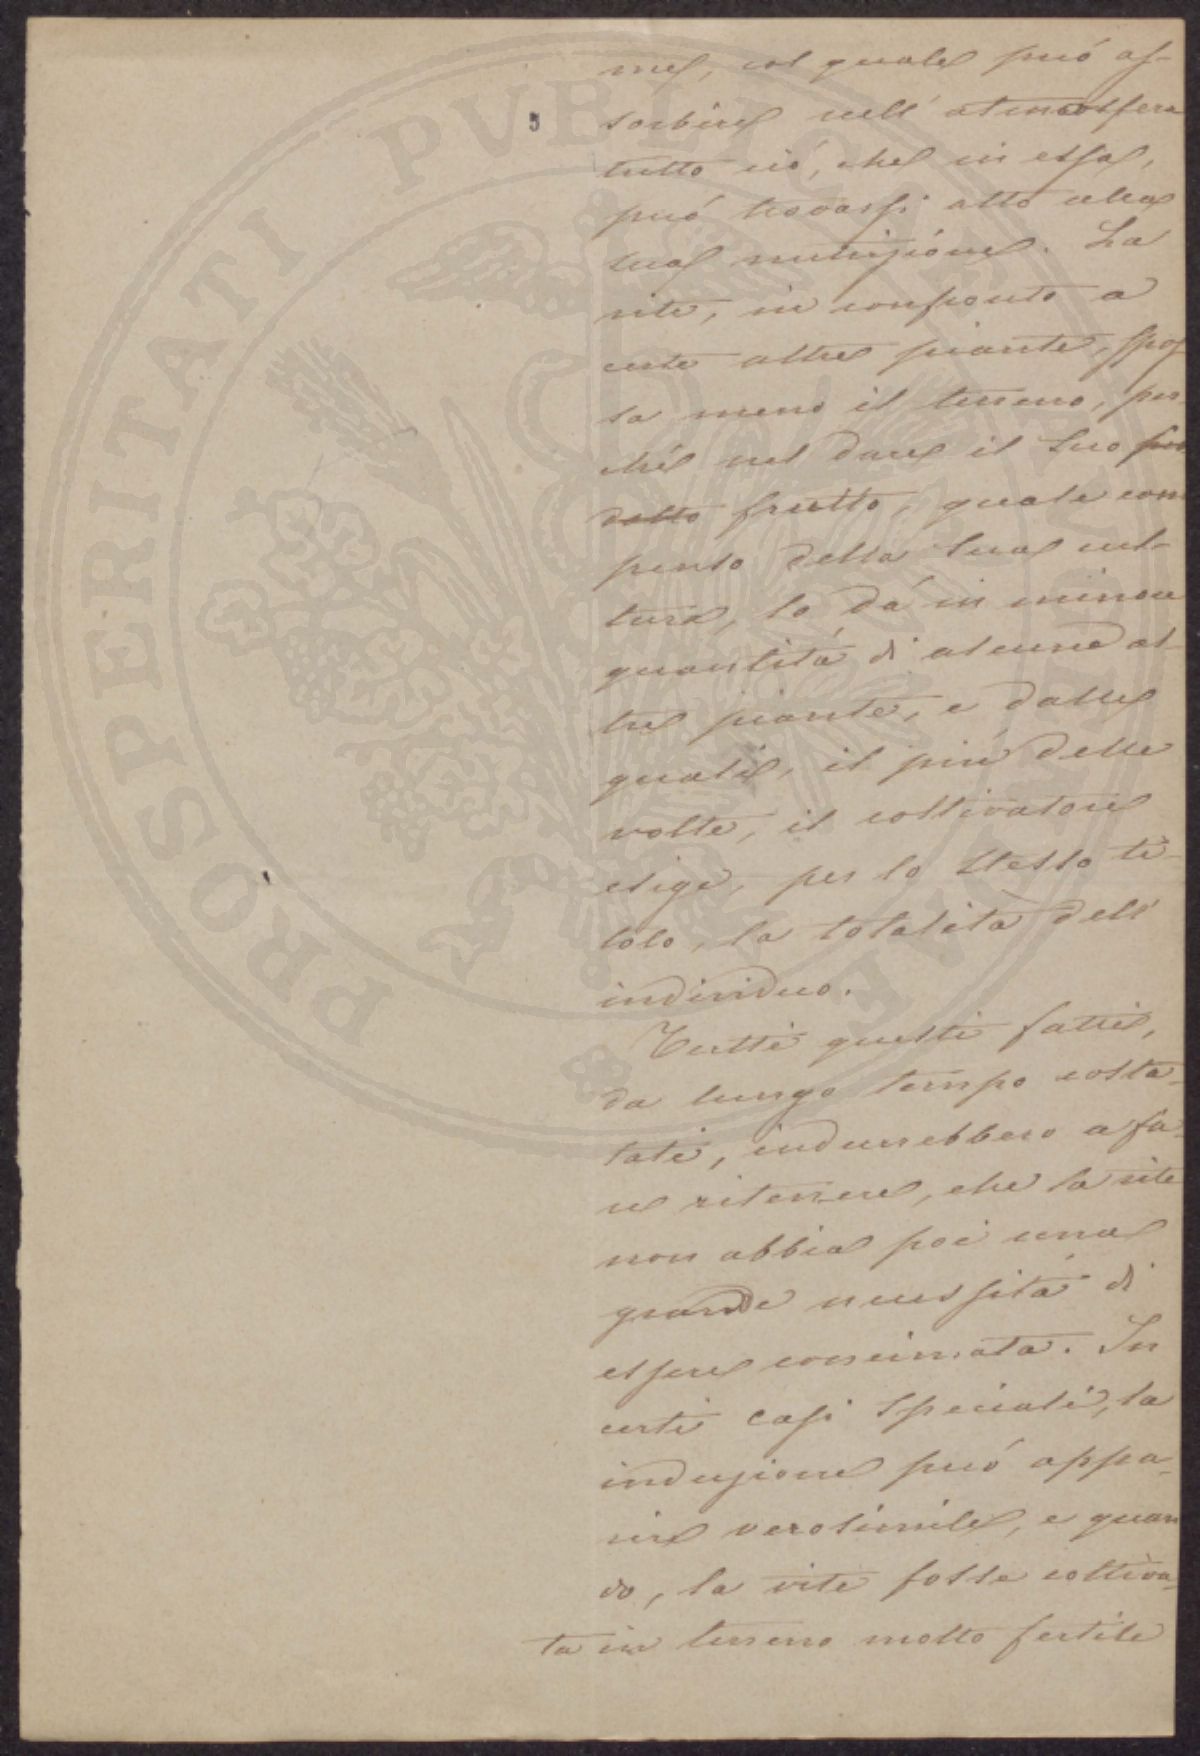 me, col quale può as-
sorbire nell'atmosfera
tutto ciò, che in essa,
può trovarsi atto alla
sua nutrizione. La
vite, in confronto a
certe altre piante, spos
sa meno il terreno, per-
chè nel dare il suo pro
dotto frutto, quale com
penso della sua cul-
tura, lo dà in minore
quantità di alcune al-
tre piante, e dalle
quali, il più delle
volte, il coltivatore
esige, per lo stesso ti-
tolo, la totalità dell'
individuo.
Tutti questi fatti,
da lungo tempo costa-
tati, indurrebbero a fa-
re ritenere, che la vite
non abbia poi una
grande necessità di
essere concimata. In
certi casi speciali, la
induzione può appa-
rire verosimile, e quan
do, la vite fosse coltiva-
ta in terreno molto fertile
PROSPERITATI PVBLICAE